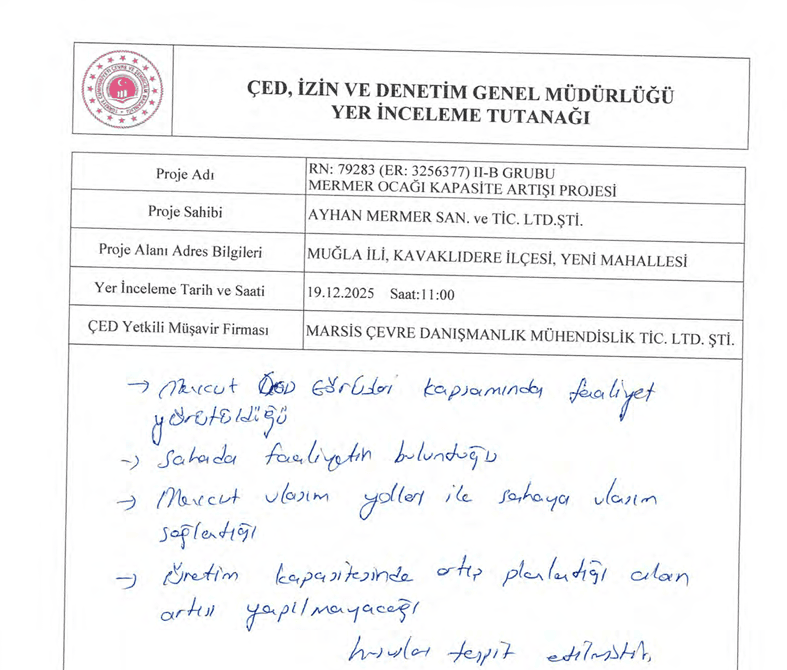 ÇED, İZİN VE DENETİM GENEL MÜDÜRLÜĞÜ
YER İNCELEME TUTANAĞI
Proje Adı
RN: 79283 (ER: 3256377) II-B GRUBU
MERMER OCAĞI KAPASİTE ARTIŞI PROJESİ
Proje Sahibi
AYHAN MERMER SAN. ve TİC. LTD.ŞTİ.
Proje Alanı Adres Bilgileri
MUĞLA İLİ, KAVAKLIDERE İLÇESİ, YENİ MAHALLESİ
Yer İnceleme Tarih ve Saati
19.12.2025 Saat:11:00
ÇED Yetkili Müşavir Firması
MARSİS ÇEVRE DANIŞMANLIK MÜHENDİSLİK TİC. LTD. ŞTİ.
→ Mevcut ÇED Görüşleri kapsamında faaliyet
yürütüldüğü
→ Sahada faaliyetin bulunduğu
→ Mevcut ulaşım yolları ile sahaya ulaşım
sağlandığı
→ Üretim kapasitesinde artış planlandığı alan
artışı yapılmayacağı
hususları tespit edilmiştir.